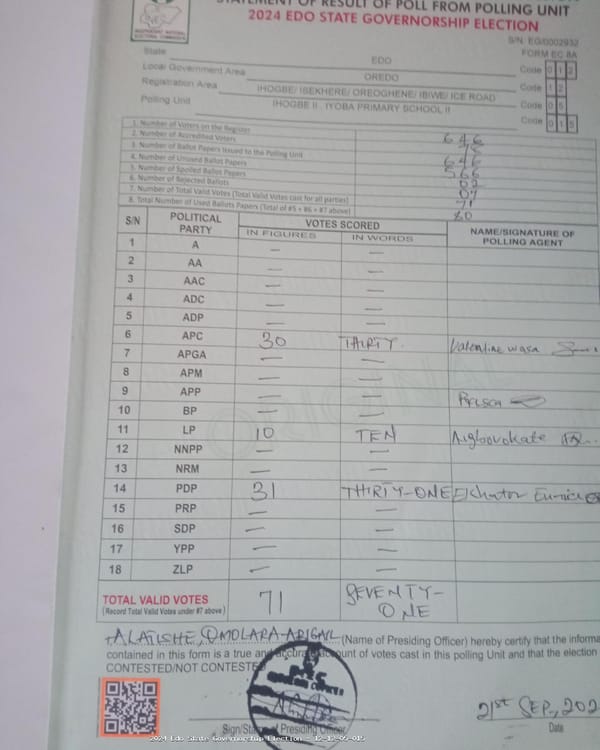 STATEMENT OF RESULT OF POLL FROM POLLING UNIT
2024 EDO STATE GOVERNORSHIP ELECTION
INEC
INDEPENDENT NATIONAL ELECTORAL COMMISSION
S/N: EG/0002932
FORM EC 8A
State EDO Code 0 1 2
Local Government Area OREDO Code 1 2
Registration Area IHOGBE/ ISEKHERE/ OREOGHENE/ IBIWE/ ICE ROAD Code 0 5
Polling Unit IHOGBE II , IYOBA PRIMARY SCHOOL II Code 0 1 5
1. Number of Voters on the Register 646
2. Number of Accredited Voters
3. Number of Ballot Papers Issued to the Polling Unit 646
4. Number of Unused Ballot Papers 566
5. Number of Spoiled Ballot Papers 02
6. Number of Rejected Ballots 07
7. Number of Total Valid Votes (Total Valid Votes cast for all parties) 71
8. Total Number of Used Ballots Papers (Total of #5 + #6 + #7 above) 80
S/N POLITICAL PARTY VOTES SCORED NAME/SIGNATURE OF POLLING AGENT
IN FIGURES IN WORDS
1 A — —
2 AA — —
3 AAC — —
4 ADC — —
5 ADP — —
6 APC 30 THIRTY. Valentine
7 APGA — —
8 APM — —
9 APP — —
10 BP — —
11 LP 10 TEN
12 NNPP — —
13 NRM — —
14 PDP 31 THIRTY-ONE
15 PRP — —
16 SDP — —
17 YPP — —
18 ZLP — —
TOTAL VALID VOTES 71 SEVENTY-ONE
(Record Total Valid Votes under #7 above)
ALATISHE, OMOLARA-ABIGAIL (Name of Presiding Officer) hereby certify that the informa
contained in this form is a true and accurate account of votes cast in this polling Unit and that the election
CONTESTED/NOT CONTESTED
21st SEP., 202
Sign/Stamp of Presiding Officer Date
2024 Edo State Governorship Election - 12-12-05-015